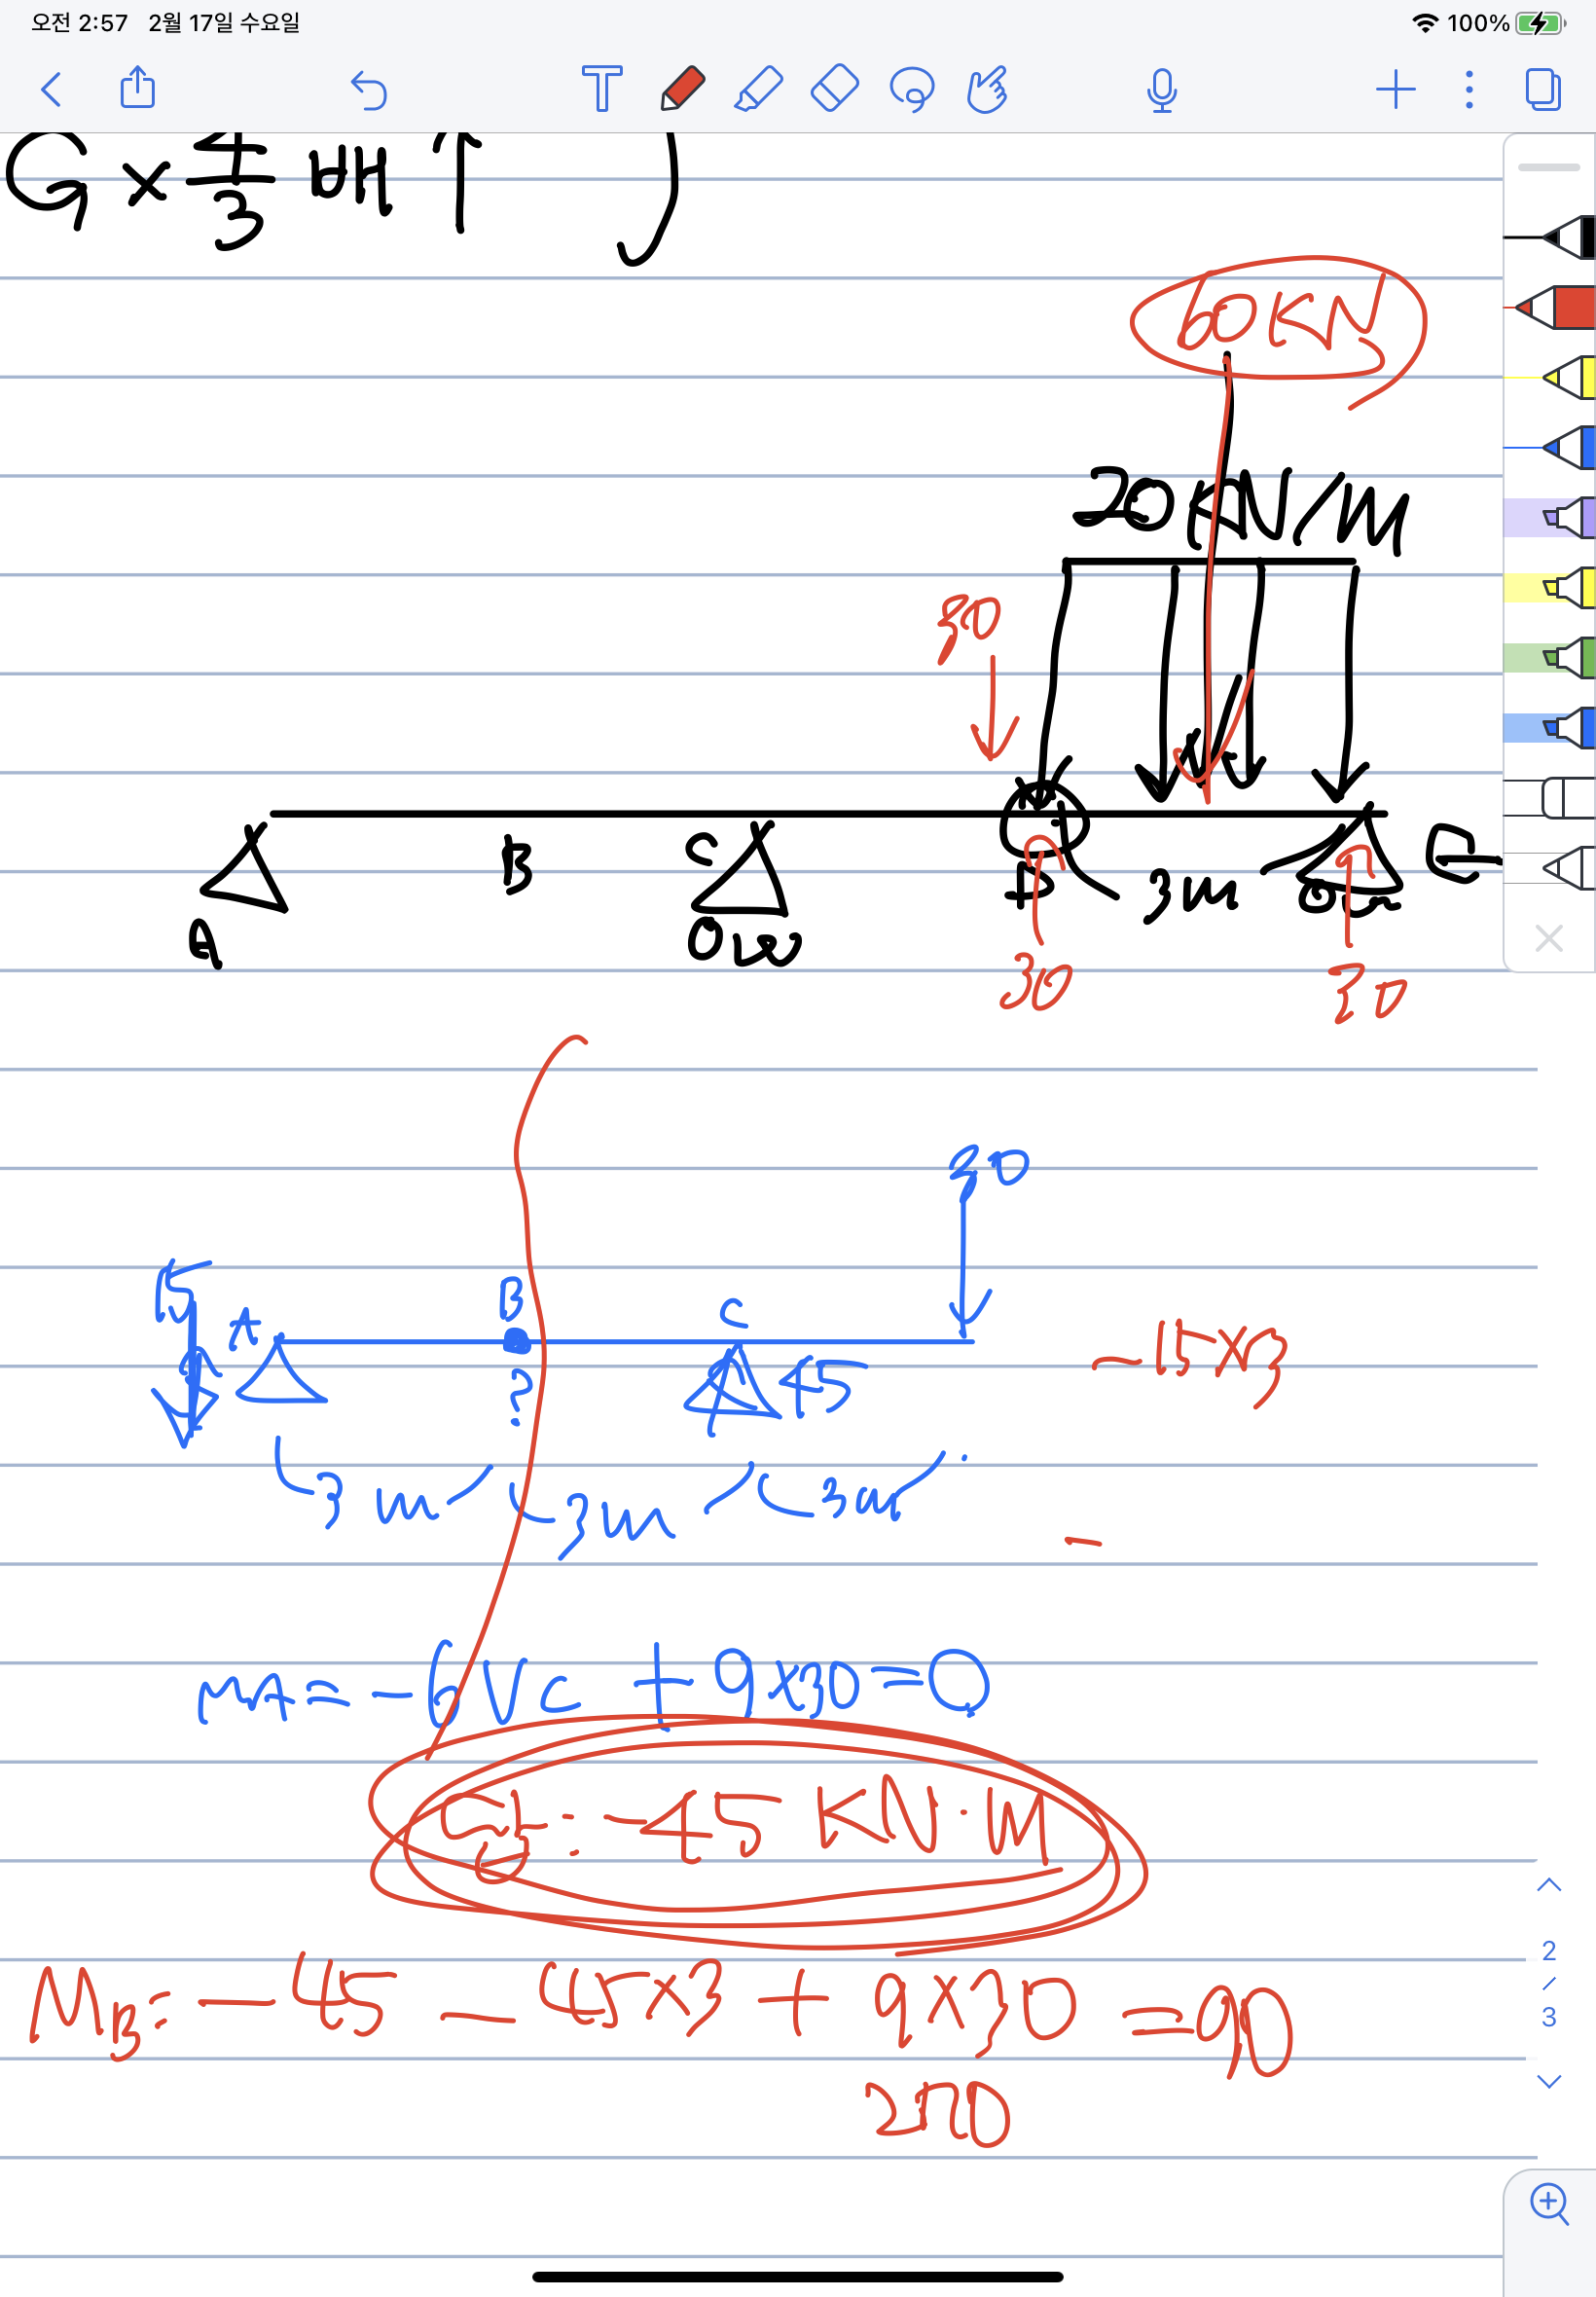 오전 2:57 2월 17일 수요일 100%
G × 4/3 배 ↑ )
60KN
20KN/M
30
A B C D 3m E
30 30
30
15 A B C 45
?
-15×3
3m 3m 3m
-
MA = -6Vc + 9×30 = 0
= -45 KN·M
2
3
MB = -45 - 45×3 + 9×30 = 90
270